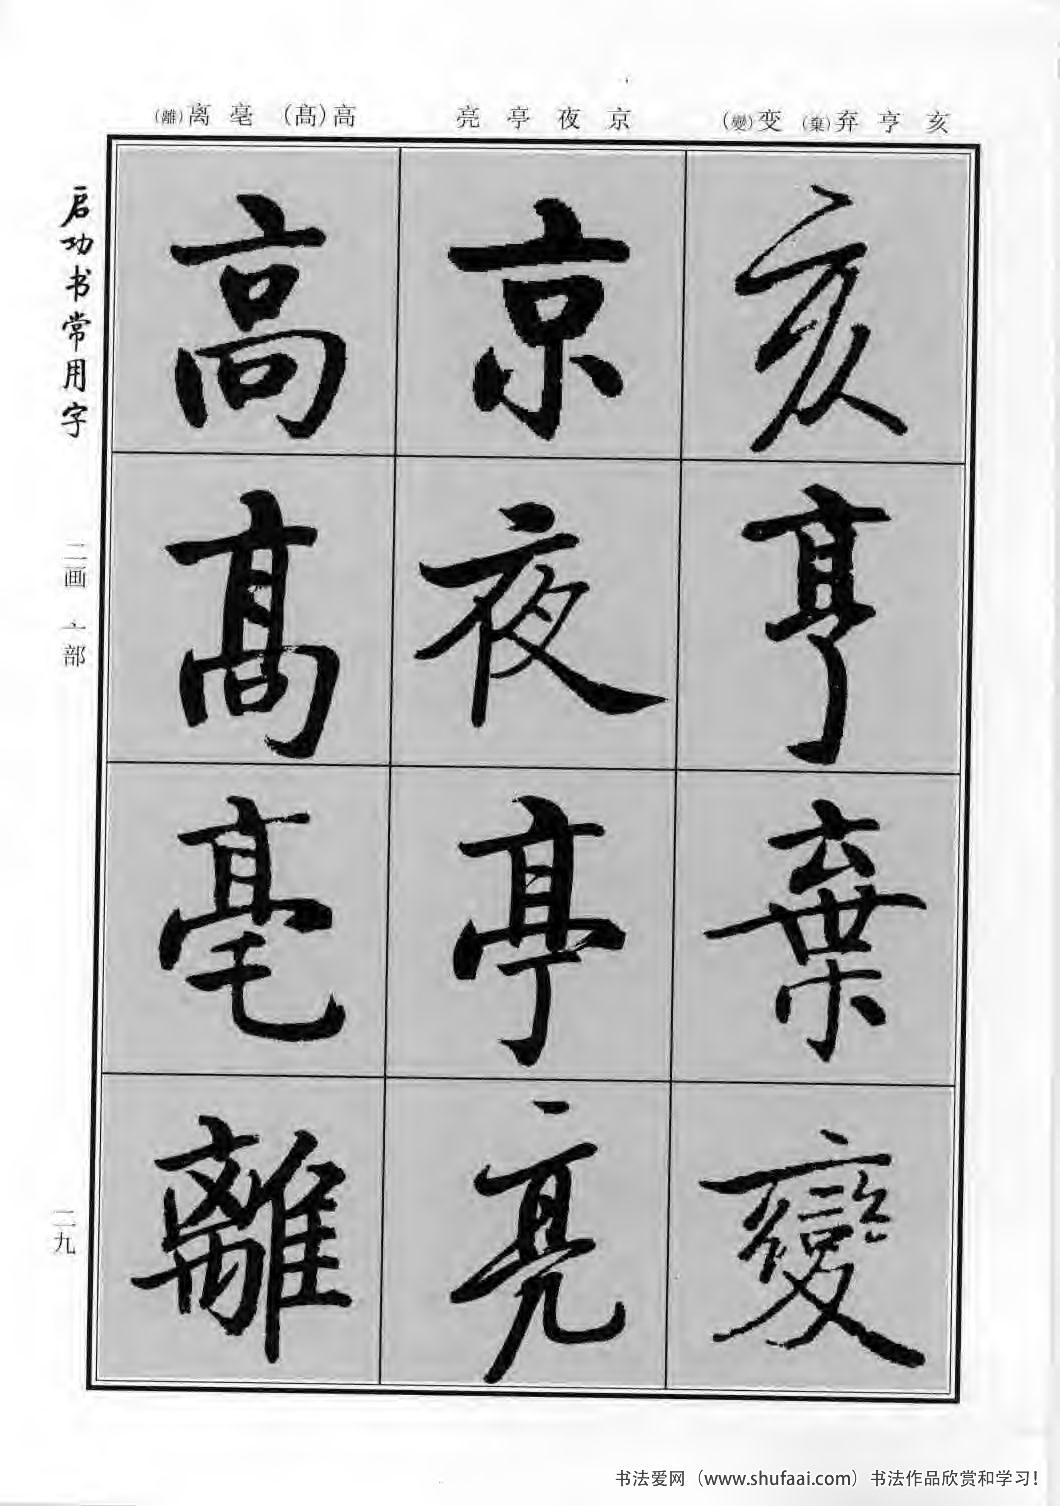 亥 亨 弃(棄) 变(變)
京 夜 亭 亮
高(髙) 亳 离(離)
亥
亨
棄
變
京
夜
亭
亮
高
髙
亳
離
启功书常用字
二画 亠部
二九
书法爱网（www.shufaai.com）书法作品欣赏和学习！